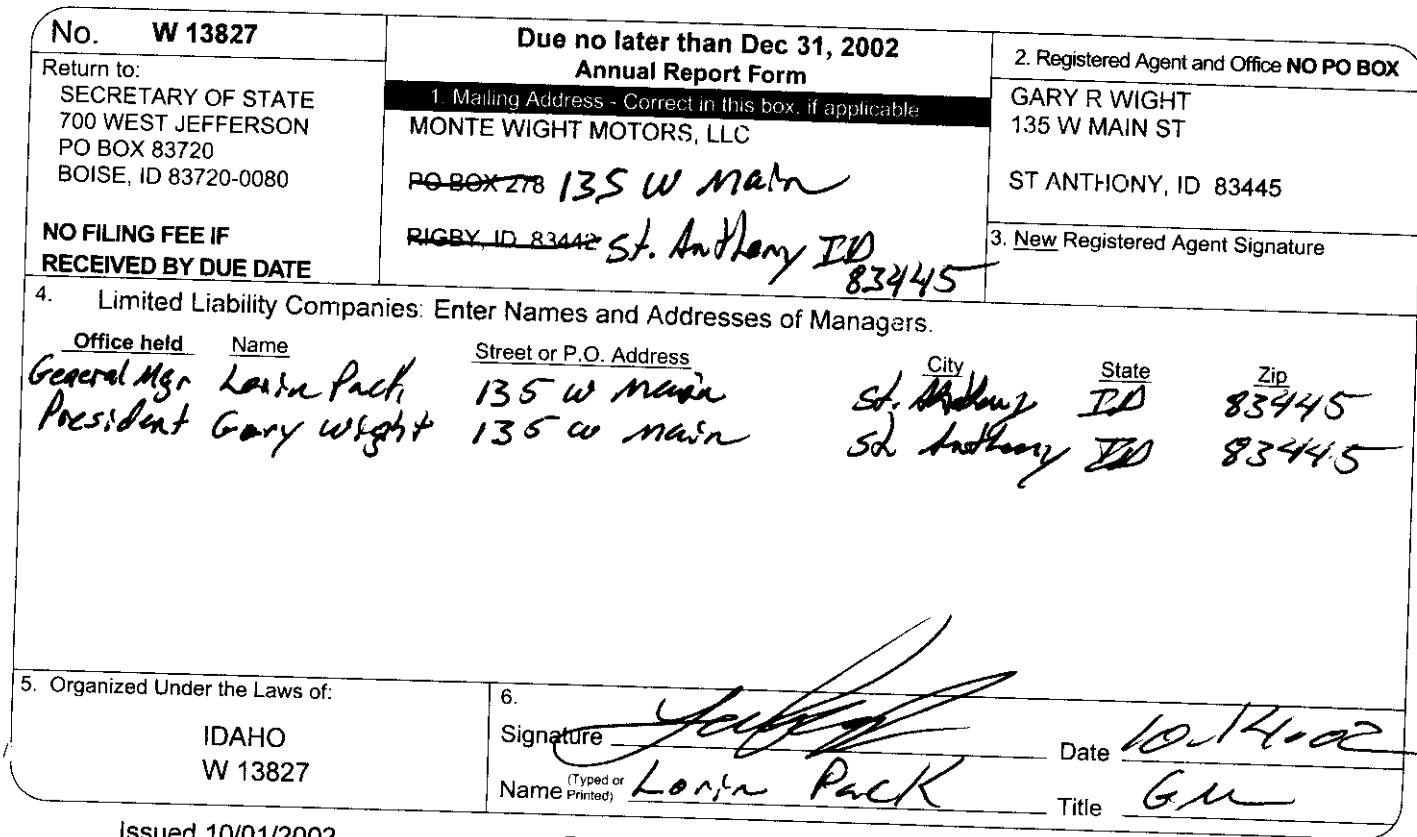 No. W 13827
Return to:
SECRETARY OF STATE
700 WEST JEFFERSON
PO BOX 83720
BOISE, ID 83720-0080
NO FILING FEE IF
RECEIVED BY DUE DATE
Due no later than Dec 31, 2002
Annual Report Form
1. Mailing Address - Correct in this box, if applicable
MONTE WIGHT MOTORS, LLC
PO BOX 278 135 W Main
RIGBY, ID 83442 St. Anthony ID
83445
2. Registered Agent and Office NO PO BOX
GARY R WIGHT
135 W MAIN ST
ST ANTHONY, ID 83445
3. New Registered Agent Signature
4. Limited Liability Companies: Enter Names and Addresses of Managers.
Office held Name Street or P.O. Address City State Zip
General Mgr Lorin Pack 135 W Main St. Anthony ID 83445
President Gary Wight 135 W Main St Anthony ID 83445
5. Organized Under the Laws of:
IDAHO
W 13827
6.
Signature Date 10.14.02
Name (Typed or Printed) Lorin Pack Title GM
Issued 10/01/2002